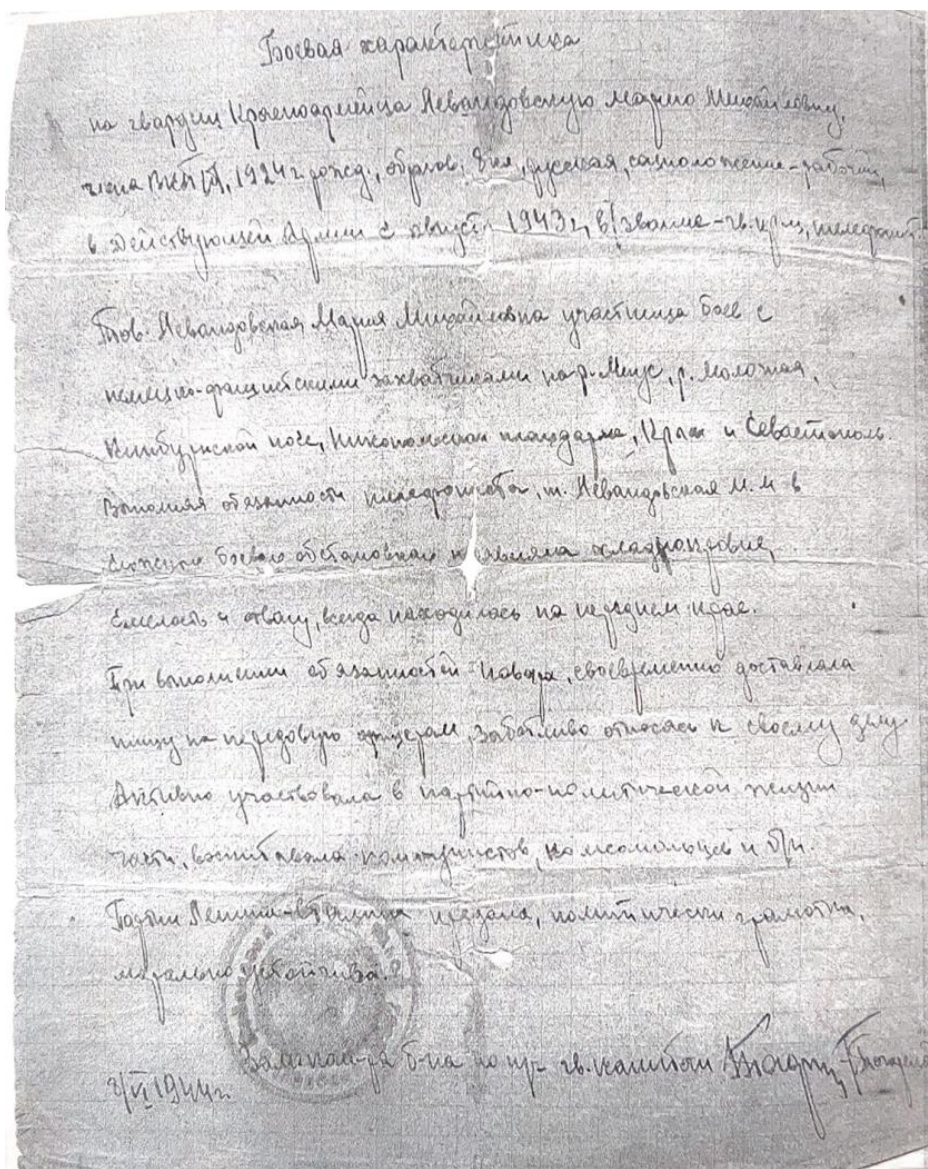 Боевая характеристика
на гвардии Красноармейца Левандовскую Марию Михайловну,
члена ВКП(б), 1924 г. рожд., образов. 8 кл., русская, соцположение - рабочий,
в действующей Армии с августа 1943 г., в/звание - гв. кр-ц, телефонист.
Тов. Левандовская Мария Михайловна участница боев с
немецко-фашистскими захватчиками на р. Миус, р. Молочная,
Кинбурнской косе, Никопольском плацдарме, Крым и Севастополь.
Выполняя обязанности телефониста, т. Левандовская М.М в
боевой обстановке проявляла хладнокровие,
смелость и отвагу, всегда находилась на переднем крае.
При выполнении обязанностей повара, своевременно доставляла
пищу на передовую офицерам, заботливо относясь к своему делу
Активно участвовала в партийно-политической жизни
части, воспитывала коммунистов, комсомольцев и б/п.
Партии Ленина-Сталина предана, политически грамотна,
морально устойчива.
Зам. ком-ра б-на по п/ч гв. капитан
VI 1944 г.